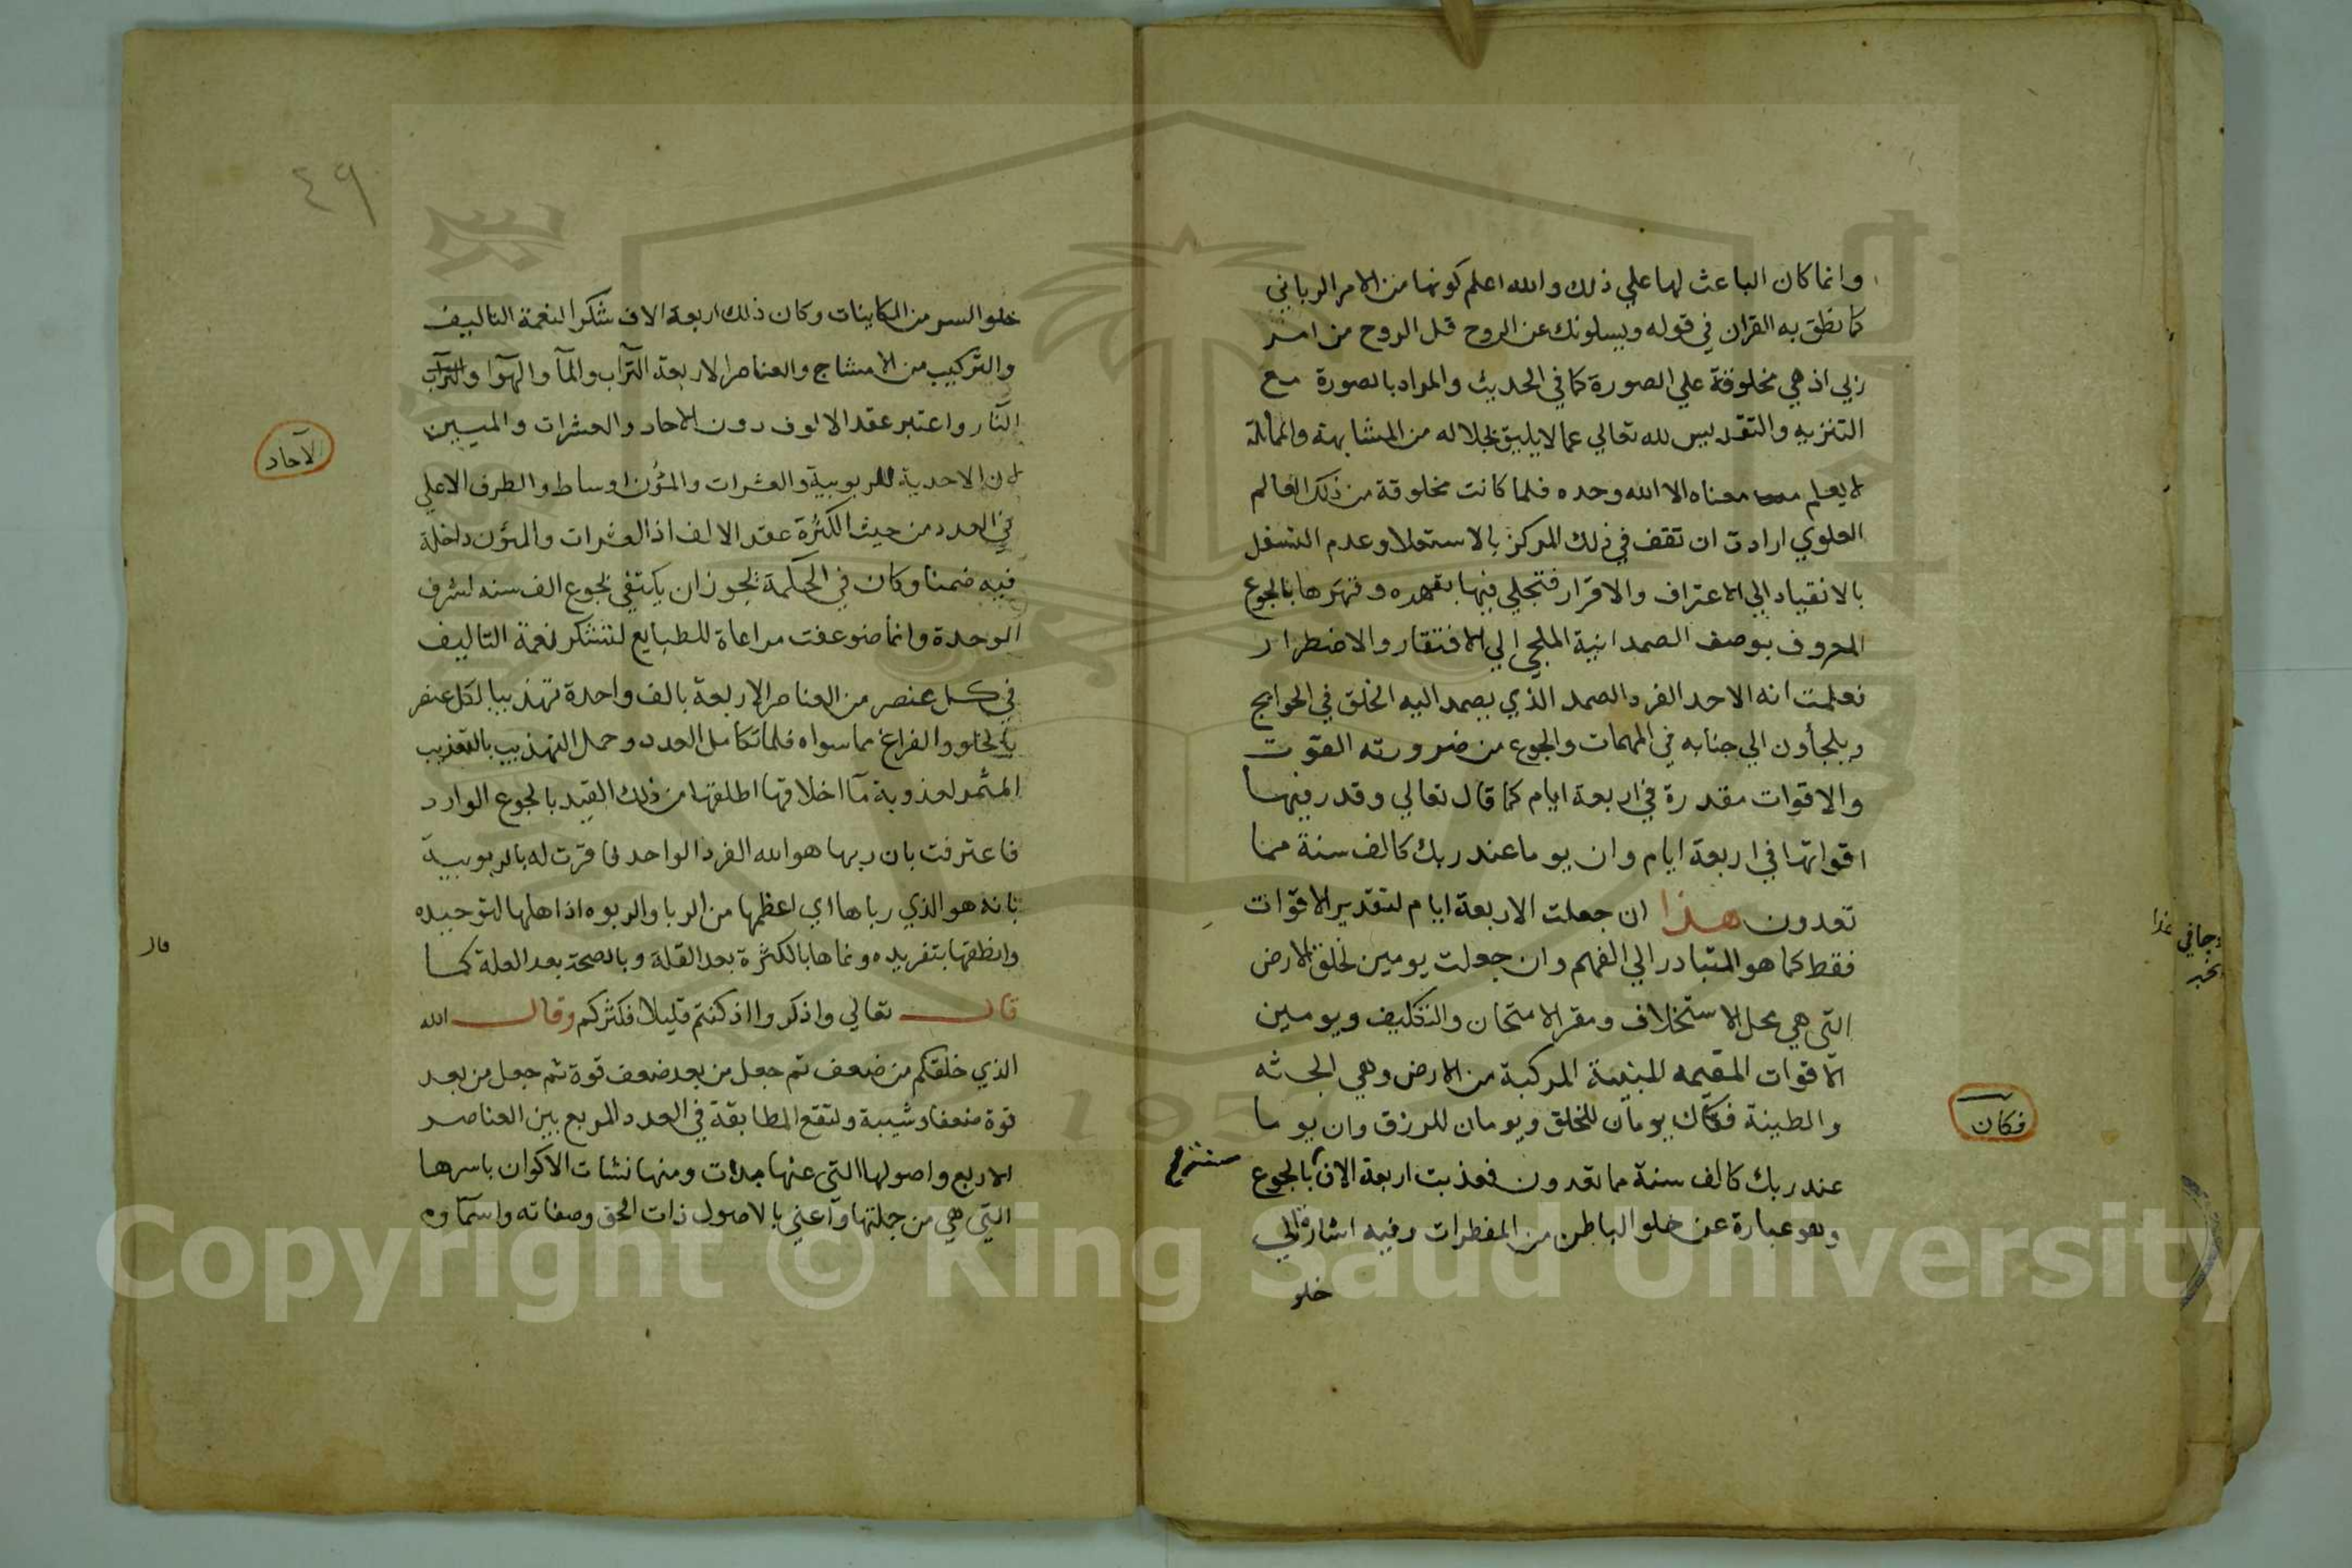 وانما كان الباعث لها علي ذلك والله اعلم كونها من الامر الرباني
كما نطق به القران في قوله ويسلونك عن الروح قل الروح من امر
ربي اذ هي مخلوقة علي الصورة كما في الحديث والمراد بالصورة مع
التنزيه والتقديس لله تعالي عما لا يليق بجلاله من المشابهة والمماثلة
لا يعلم معناه الا الله وحده فلما كانت مخلوقة من ذلك العالم
العلوي ارادت ان تقف في ذلك المركز بالاستعلا وعدم التسفل
بالانقياد الي الاعتراف والاقرار فتجلي فيها بقهره وقهرها بالجوع
المعروف بوصف الصمدانية الملجي الي الافتقار والاضطرار
فعلمت انه الاحد الفرد الصمد الذي يصمد اليه الخلق في الحوايج
ويلجأون الي جنابه في المهمات والجوع من ضرورته القوت
والاقوات مقدرة في اربعة ايام كما قال تعالي وقدر فيها
اقواتها في اربعة ايام وان يوما عند ربك كالف سنة مما
تعدون هذا ان جعلت الاربعة ايام لتقدير الاقوات
فقط كما هو المتبادر الي الفهم وان جعلت يومين لخلق الارض
التي هي محل الاستخلاف ومقر الامتحان والتكليف ويومين
الاقوات المقيمه للبنية المركبة من الارض وهي الجثه
والطينة فكان يومان للخلق ويومان للرزق وان يوما
فكان
عند ربك كالف سنة مما تعدون فعذبت اربعة الاف بالجوع
وهو عبارة عن خلو الباطن من المفطرات وفيه اشارة الي
خلو
٤٩
خلو السر من الكاينات وكان ذلك اربعة الاف شكرا لنعمة التاليف
والتركيب من الامشاج والعناصر الاربعة التراب والمآ والهوآ والتراب
النار واعتبر عقد الالوف دون الاحاد والعشرات والميين
الآحاد
لان الاحدية للربوبية والعشرات والمئون اوساط والطرف الاعلي
في العدد من حيث الكثرة عقد الالف اذ العشرات والمئون داخلة
فيه ضمنا وكان في الحكمة يجوز ان يكتفي بجوع الف سنه لشرف
الوحدة وانما ضوعفت مراعاة للطبايع لتشكر نعمة التاليف
في كل عنصر من العناصر الاربعة بالف واحدة تهذيبا لكل عنصر
بالخلو والفراغ مما سواه فلما تكامل العدد وحمل التهذيب بالتعذيب
المثمر لعذوبة مآ اخلاقها اطلقها من ذلك القيد بالجوع الوارد
فاعترفت بان ربها هو الله الفرد الواحد فاقرت له بالربوبية
بانه هو الذي رباها اي اعظمها من الربا والربوه اذ اهلها لتوحيده
وانطقها بتفريده ونماها بالكثرة بعد القلة وبالصحة بعد العلة كما
قال تعالي واذكروا اذ كنتم قليلا فكثركم وقال الله
الذي خلقكم من ضعف ثم جعل من بعد ضعف قوة ثم جعل من بعد
قوة ضعفا وشيبة ولتقع المطابقة في العدد المربع بين العناصر
الاربع واصولها التي عنها بدات ومنها نشات الاكوان باسرها
التي هي من جملتها وآعني بالاصول ذات الحق وصفاته واسمآوه
Copyright © King Saud University
1957